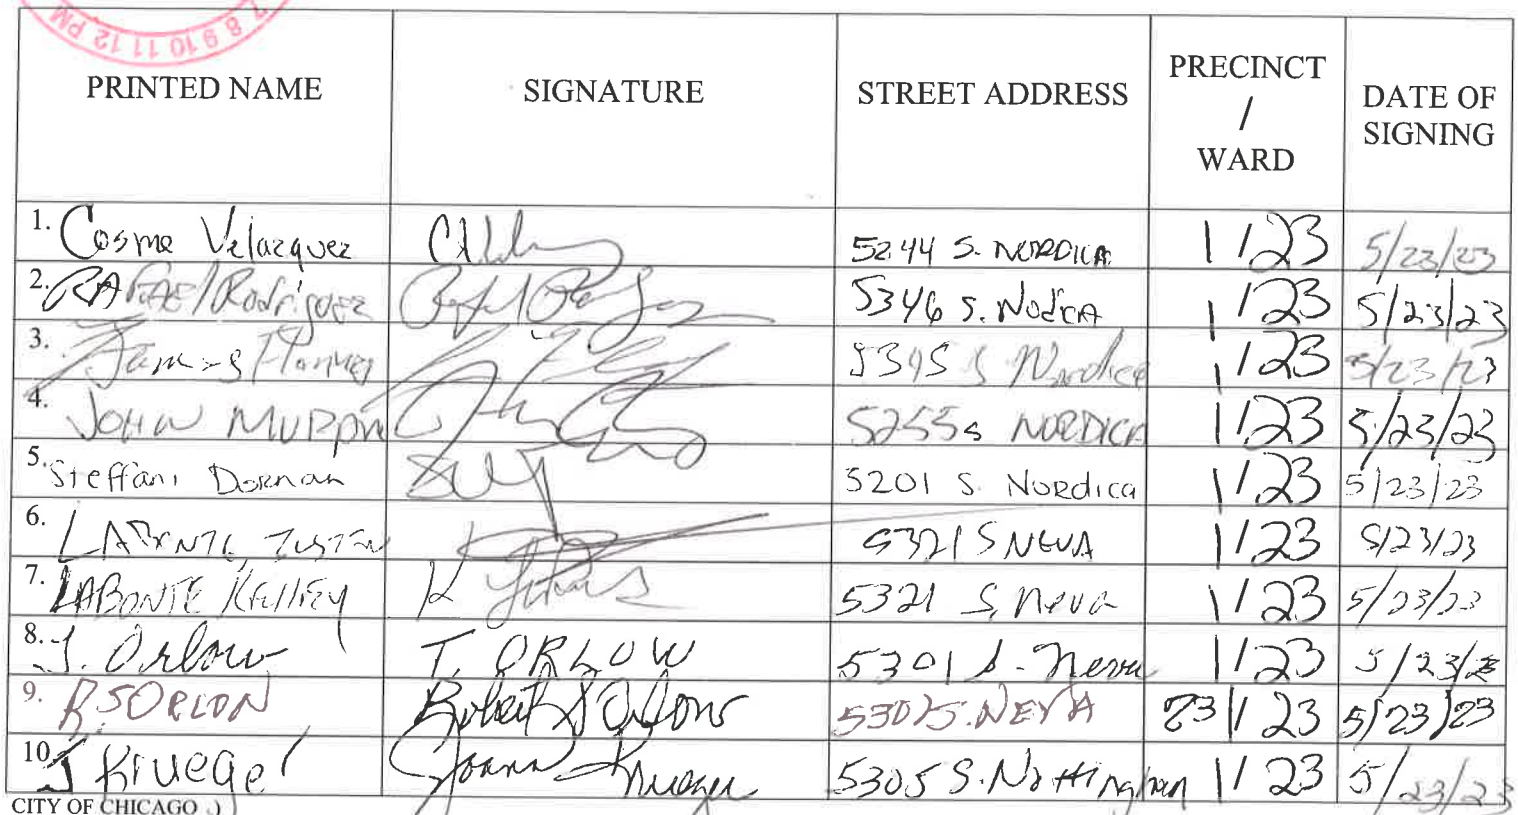 7 8 9 10 11 12 PM
PRINTED NAME SIGNATURE STREET ADDRESS PRECINCT / WARD DATE OF SIGNING
1. Cosme Velazquez 5244 S. NORDICA 1/23 5/23/23
2. RAFAEl Rodriguez 5346 S. NodicA 1/23 5/23/23
3. James 5345 S Nordica 1/23 5/23/23
4. JOHN MURPHY 5255 s NORDICA 1/23 5/23/23
5. Steffani Dornan 5201 S. Nordica 1/23 5/23/23
6. LABONTE, JUSTIN 5321 S NEVA 1/23 5/23/23
7. LABONTE KELLEY 5321 S. Neva 1/23 5/23/23
8. J. Orlow T. ORLOW 5301 S. Neva 1/23 5/23/23
9. R.S ORLOW Robert S Orlow 5301 S. NEVA 23/123 5/23/23
10. J Krueger Joann Krueger 5305 S. Nottingham 1/23 5/23/23
CITY OF CHICAGO )